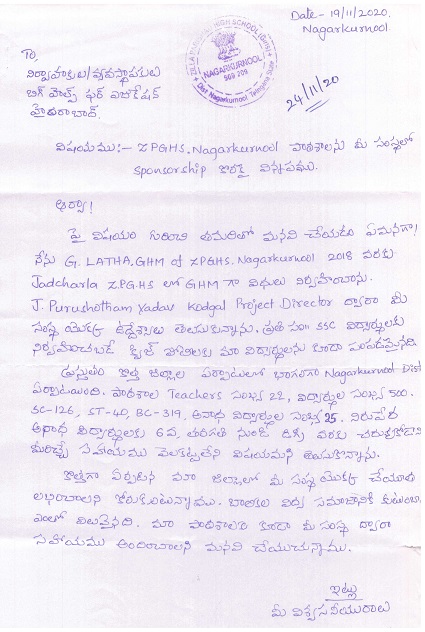 Date- 19/11/2020.
Nagarkurnool
ZILLA PARISHAD HIGH SCHOOL (Girls)
NAGARKURNOOL
509 209
Dist: Nagarkurnool Telangana State
24/11/20
To,
నిర్వాహకులు/వ్యవస్థాపకులు
హైదరాబాద్.
విషయము:- ZPGHS. Nagarkurnool పాఠశాలను మీ సంస్థలో
sponsorship కొరకై విన్నపము.
ఆర్యా!
పై విషయం గురించి తమరితో మనవి చేయడం ఏమనగా!
నేను G. LATHA, GHM of ZPGHS. Nagarkurnool 2018 వరకు
Jadcharla Z.P.G.HS లో GHM గా విధులు నిర్వహించాను.
J. Purushotham Yadav Kodgal Project Director ద్వారా మీ
సంస్థ యొక్క ఉద్దేశ్యాలు తెలుసుకున్నాను. ప్రతి సం॥ SSC విద్యార్థులకు
నిర్వహించబడే క్విజ్ పోటీలకు మా విద్యార్థులను కూడా పంపడమైనది.
ప్రస్తుతం కొత్త జిల్లాల ఏర్పాటులో భాగంగా Nagarkurnool Dist
ఏర్పాటయింది. పాఠశాల Teachers సంఖ్య 22, విద్యార్థుల సంఖ్య 500.
SC-126, ST-40, BC-319, అనాధ విద్యార్థుల సంఖ్య 25. నిరుపేద
అనాధ విద్యార్థులకు 6వ, తరగతి నుండి డిగ్రీ వరకు
సహాయము వెలకట్టలేని విషయమని తెలుసుకొన్నాను.
కొత్తగా ఏర్పడిన మా జిల్లాలో మీ సంస్థ యొక్క చేయూత
లభించాలని కోరుకుంటున్నాము. బాలికల విద్య సమాజానికి
ఎంతో విలువైనది. మా పాఠశాలకు కూడా మీ సంస్థ ద్వారా
సహాయము అందించాలని మనవి చేయుచున్నాము.
ఇట్లు
మీ విశ్వసనీయురాలు